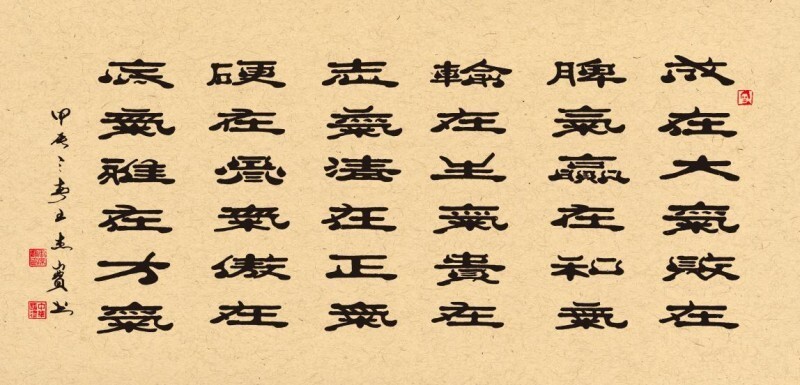 成在大氣敗在
脾氣贏在和氣
輸在生氣貴在
志氣清在正氣
硬在骨氣傲在
底氣雅在氣
甲辰之春王書